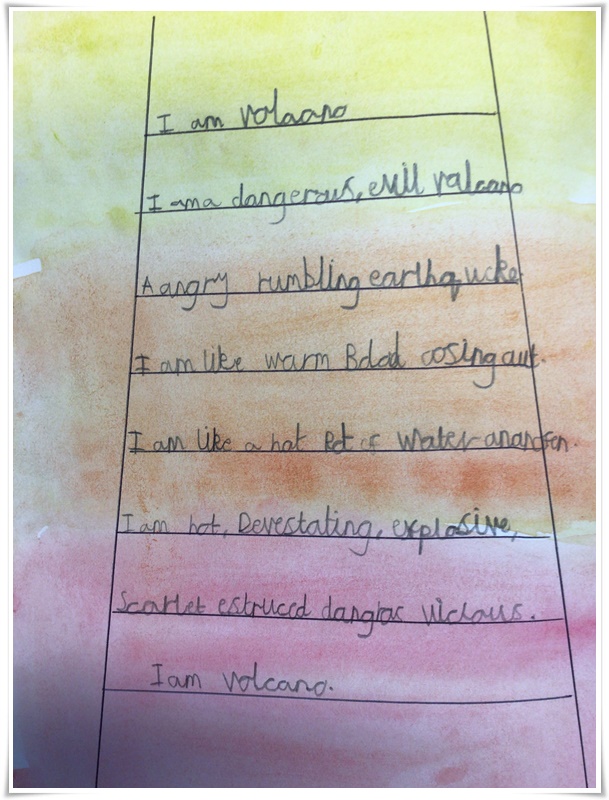 I am volcano
I am a dangerous, evill valcano
A angry rumbling earthqucke
I am like warm Blod oosing out.
I am like a hot Pot of water
I am hot, Devestating, explosive,
Scarlet dangras viclous.
I am volcano.